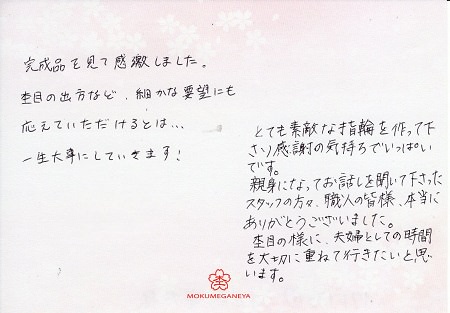 完成品を見て感激しました。
杢目の出方など、細かな要望にも
応えていただけるとは…
一生大事にしていきます!
とても素敵な指輪を作って下
さり感謝の気持ちでいっぱい
です。
親身になってお話しを聞いて下さった
スタッフの方々、職人の皆様、本当に
ありがとうございました。
杢目の様に、夫婦としての時間
を大切に重ねて行きたいと思
います。
杢
MOKUMEGANEYA